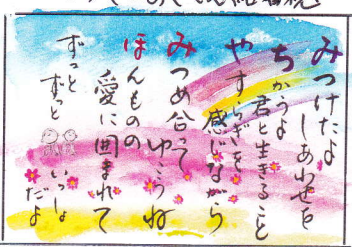 みつけたよ
しあわせを
ちかうよ
君と生きること
やすらぎを
感じながら
みつめ合って
ゆこうね
ほんものの
愛に囲まれて
ずっと
ずっと
いっしょ
だよ